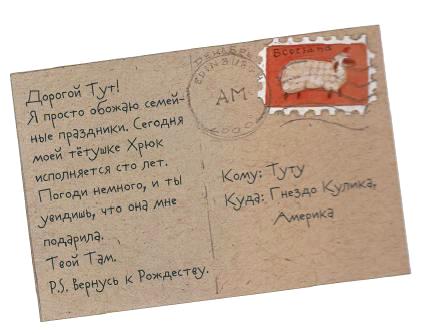 Дорогой Тут!
Я просто обожаю семей-
ные праздники. Сегодня
моей тётушке Хрюк
исполняется сто лет.
Погоди немного, и ты
увидишь, что она мне
подарила.
Твой Там.
P.S. Вернусь к Рождеству.
AM
Scotland
Кому: Туту
Куда: Гнездо Кулика,
Америка